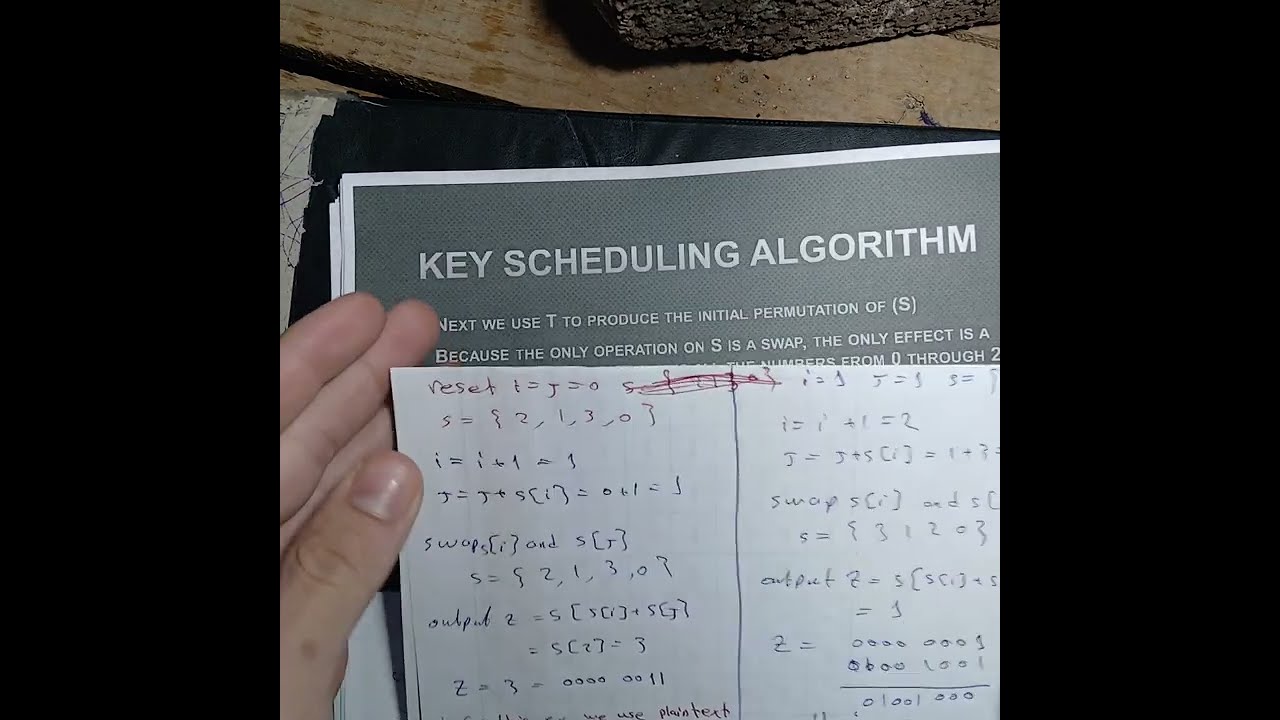 KEY SCHEDULING ALGORITHM
NEXT WE USE T TO PRODUCE THE INITIAL PERMUTATION OF (S)
BECAUSE THE ONLY OPERATION ON S IS A SWAP, THE ONLY EFFECT IS A
THE NUMBERS FROM 0 THROUGH 2
reset i = j = 0
s = { 2, 1, 3, 0 }
i = i + 1 = 1
j = j + s[i] = 0+1 = 1
swap s[i] and s[j]
s = { 2, 1, 3, 0 }
output z = s [s[i] + s[j]
= s[2] = 3
z = 3 = 0000 0011
we use plaintext
i=1 j=1 s= {
i = i + 1 = 2
j = j+s[i] = 1+3=
swap s[i] and s[
s = { 3 1 2 0 }
output z = s[s[i]+s
= 1
z = 0000 0001
0100 1001
01001 000